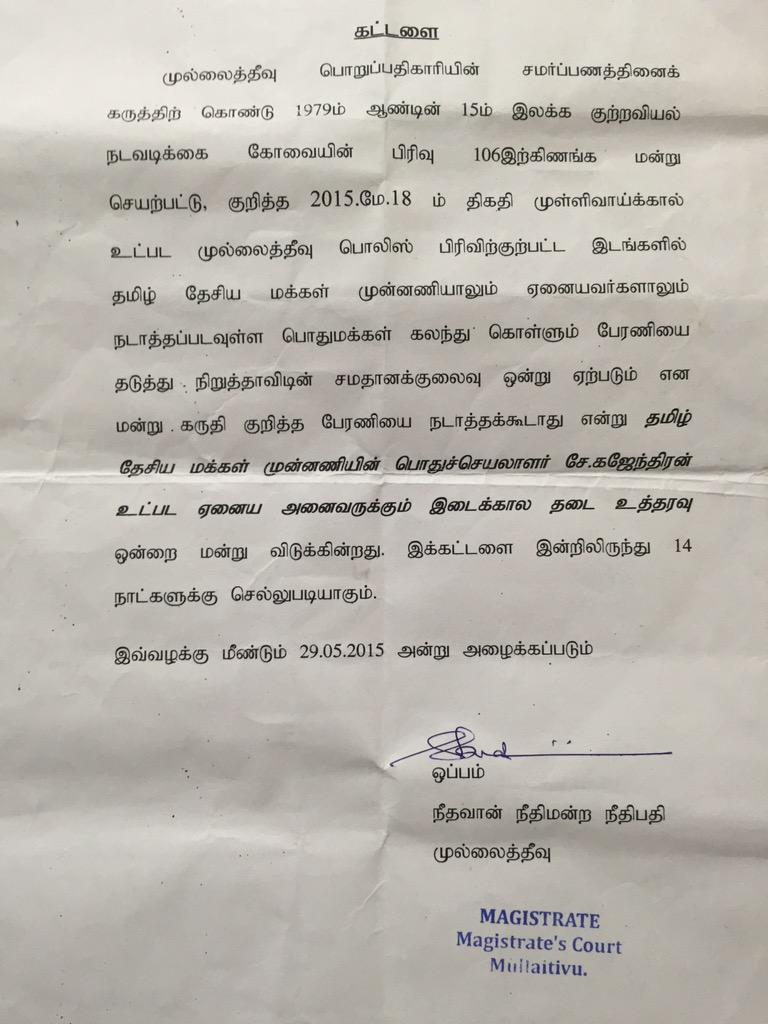 கட்டளை
முல்லைத்தீவு பொறுப்பதிகாரியின் சமர்ப்பணத்தினைக்
கருத்திற் கொண்டு 1979ம் ஆண்டின் 15ம் இலக்க குற்றவியல்
நடவடிக்கை கோவையின் பிரிவு 106இற்கிணங்க மன்று
செயற்பட்டு, குறித்த 2015.மே.18 ம் திகதி முள்ளிவாய்க்கால்
உட்பட முல்லைத்தீவு பொலிஸ் பிரிவிற்குற்பட்ட இடங்களில்
தமிழ் தேசிய மக்கள் முன்னணியாலும் ஏனையவர்களாலும்
நடாத்தப்படவுள்ள பொதுமக்கள் கலந்து கொள்ளும் பேரணியை
தடுத்து நிறுத்தாவிடின் சமதானக்குலைவு ஒன்று ஏற்படும் என
மன்று கருதி குறித்த பேரணியை நடாத்தக்கூடாது என்று தமிழ்
தேசிய மக்கள் முன்னணியின் பொதுச்செயலாளர் சே.கஜேந்திரன்
உட்பட ஏனைய அனைவருக்கும் இடைக்கால தடை உத்தரவு
ஒன்றை மன்று விடுக்கின்றது. இக்கட்டளை இன்றிலிருந்து 14
நாட்களுக்கு செல்லுபடியாகும்.
இவ்வழக்கு மீண்டும் 29.05.2015 அன்று அழைக்கப்படும்
ஒப்பம்
நீதவான் நீதிமன்ற நீதிபதி
முல்லைத்தீவு
MAGISTRATE
Magistrate's Court
Mullaitivu.